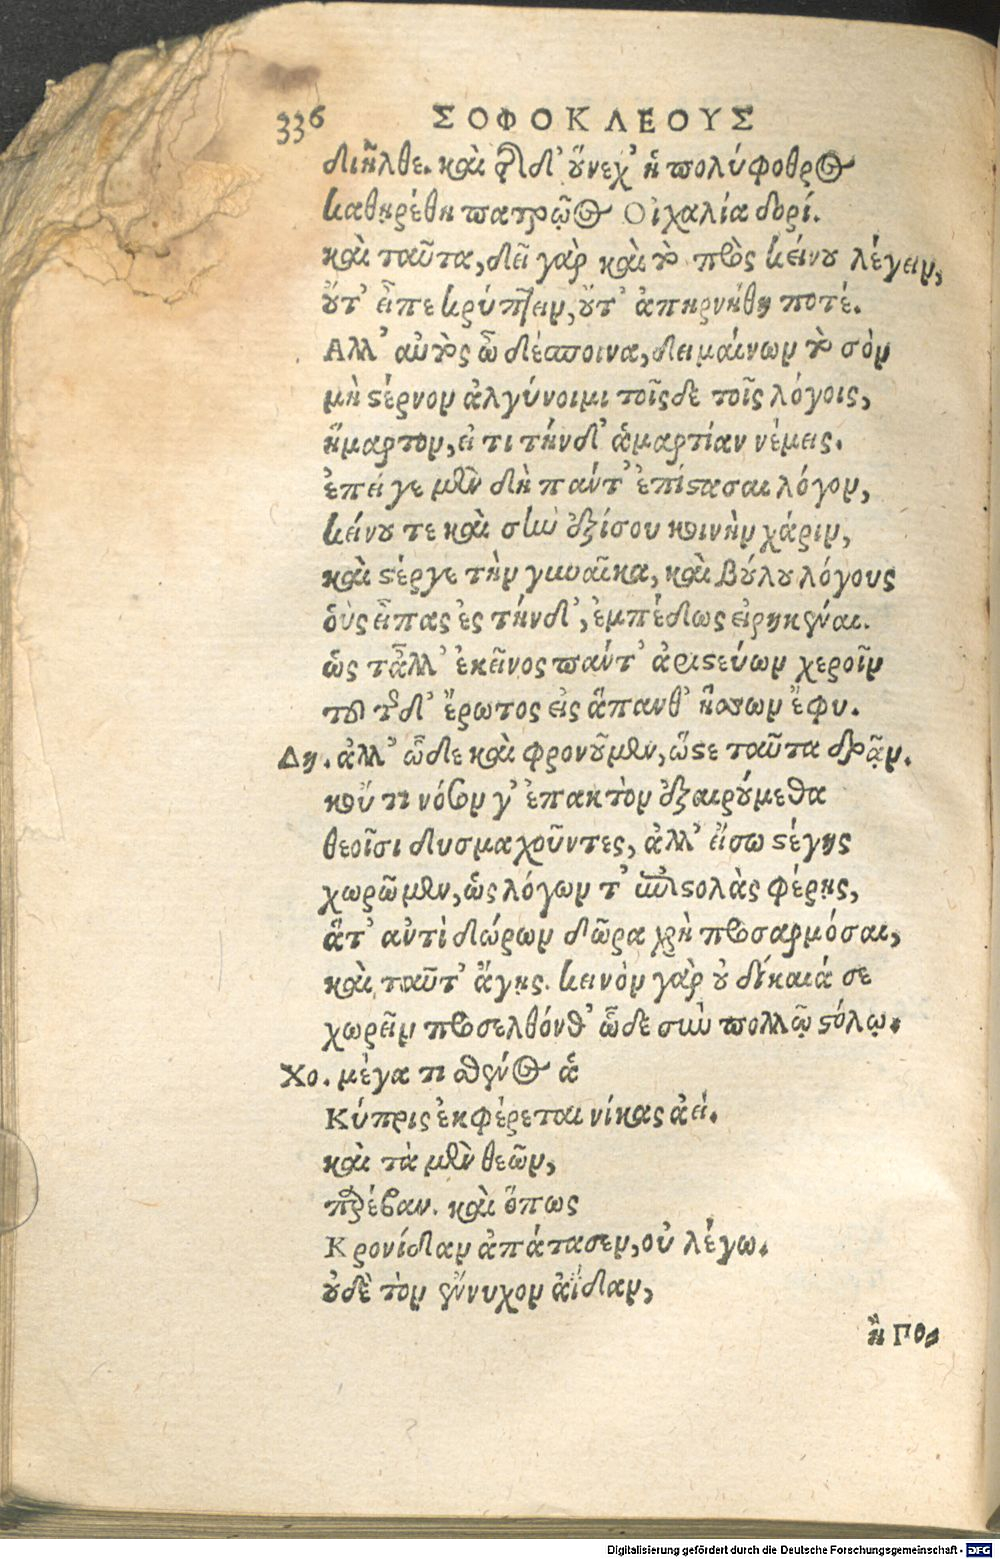 336 ΣΟΦΟΚΛΕΟΥΣ
διῆλθε. καὶ τῆσδ' οὕνεχ' ἡ πολύφθορος
καθῃρέθη πατρῷος Οἰχαλία δορί.
καὶ ταῦτα, δεῖ γὰρ καὶ τὸ πρὸς κείνου λέγειν,
οὔτ' εἶπε κρύπτειν, οὔτ' ἀπηρνήθη ποτέ.
Αλλ' αὐτὸς ὦ δέσποινα, δειμαίνων τὸ σὸν
μὴ στέρνον ἀλγύνοιμι τοῖςδε τοῖς λόγοις,
ἥμαρτον, εἴ τι τήνδ' ἁμαρτίαν νέμεις.
ἐπεί γε μὲν δὴ πάντ' ἐπίστασαι λόγον,
κείνου τε καὶ σὴν ἐξίσου κοινὴν χάριν,
καὶ στέργε τὴν γυναῖκα, καὶ βούλου λόγους
οὓς εἶπας ἐς τήνδ', ἐμπέδως εἰρηκέναι.
ὡς τἆλλ' ἐκεῖνος πάντ' ἀριστεύων χεροῖν
τοῦ τῆσδ' ἔρωτος εἰς ἅπανθ' ἥσσων ἔφυ.
Δη. ἀλλ' ὧδε καὶ φρονοῦμεν, ὥστε ταῦτα δρᾷν.
κοὔ τι νόσον γ' ἐπακτὸν ἐξαιρούμεθα
θεοῖσι δυσμαχοῦντες, ἀλλ' εἴσω στέγης
χωρῶμεν, ὡς λόγων τ' ἐπιστολὰς φέρῃς,
ἅτ' ἀντὶ δώρων δῶρα χρὴ προσαρμόσαι,
καὶ ταῦτ' ἄγῃς. κεινὸν γὰρ οὐ δίκαιά σε
χωρεῖν προσελθόνθ' ὧδε σὺν πολλῷ στόλῳ.
Χο. μέγα τι σθένος ἁ
Κύπρις ἐκφέρεται νίκας ἀεί.
καὶ τὰ μὲν θεῶν,
παρέβαν. καὶ ὅπως
Κρονίδαν ἀπάτασεν, οὐ λέγω.
οὐδὲ τὸν ἔννυχον ἀΐδαν,
ἢ Πο-
Digitalisierung gefördert durch die Deutsche Forschungsgemeinschaft - DFG